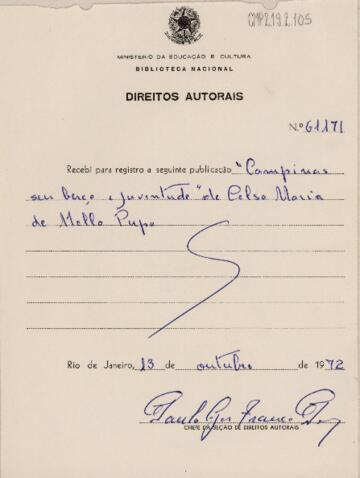 CMP2.19.2.105
MINISTÉRIO DA EDUCAÇÃO E CULTURA
BIBLIOTECA NACIONAL
DIREITOS AUTORAIS
N.º 61171
Recebi para registro a seguinte publicação "Campinas
seu berço e juventude" de Celso Maria
de Mello Pupo
Rio de Janeiro, 13 de outubro de 1972
CHEFE DA SEÇÃO DE DIREITOS AUTORAIS